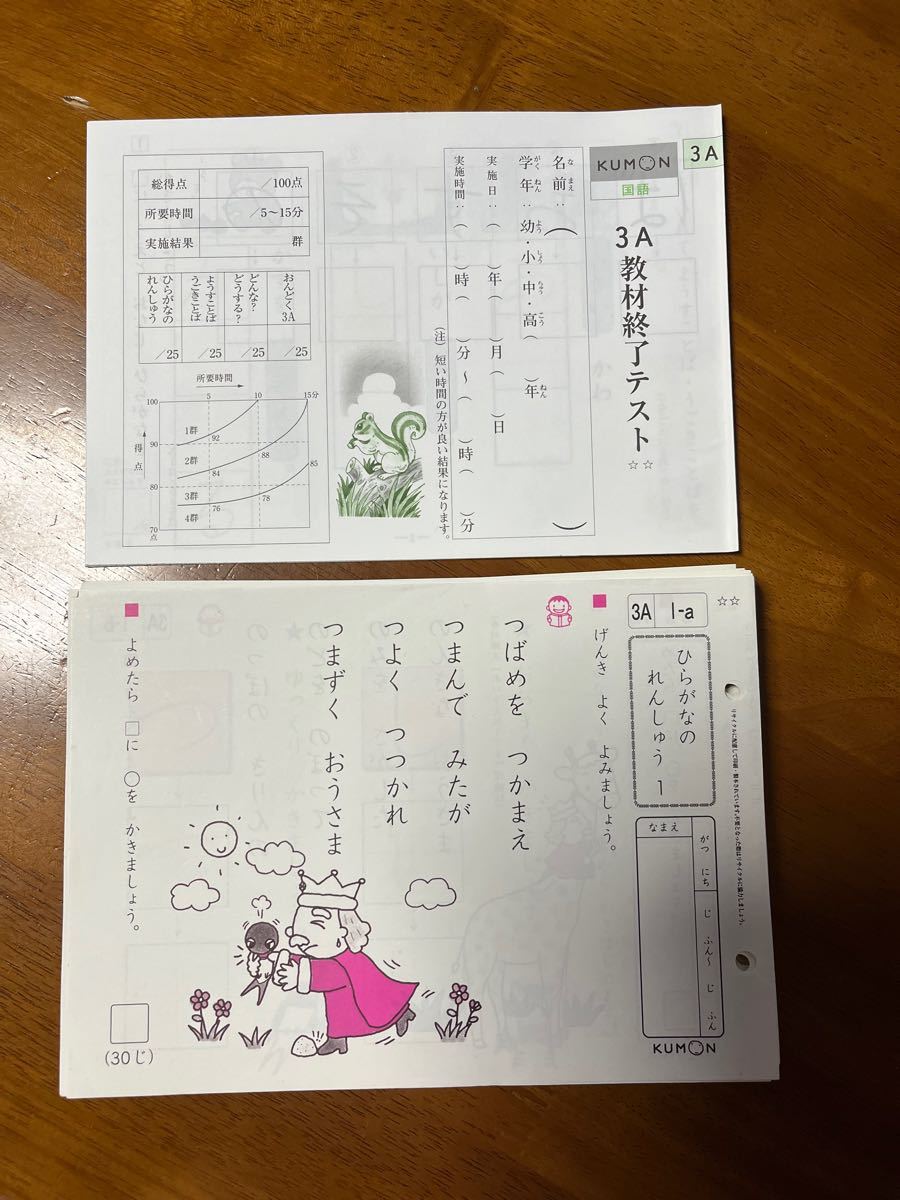 3A
KUMON
国語
3A教材終了テスト
☆☆
名前：（　）
学年：幼・小・中・高（　）年
実施日：（　）年（　）月（　）日
実施時間：（　）時（　）分～（　）時（　）分
（注）短い時間の方が良い結果になります。
総得点 /100点
所要時間 /5～15分
実施結果 群
おんどく3A /25
どんな？どうする？ /25
ようすことばうごきことば /25
ひらがなのれんしゅう /25
所要時間
5 10 15分
得点
100
90
80
70点
1群
2群
3群
4群
92
84
76
88
78
85
☆☆
3A 1-a
ひらがなの
れんしゅう 1
がつ にち
じ ふん～ じ ふん
なまえ
KUMON
■ げんき よく よみましょう。
つばめを つかまえ
つまんで みたが
つよく つつかれ
つまずく おうさま
■ よめたら □に ○を かきましょう。
(30じ)